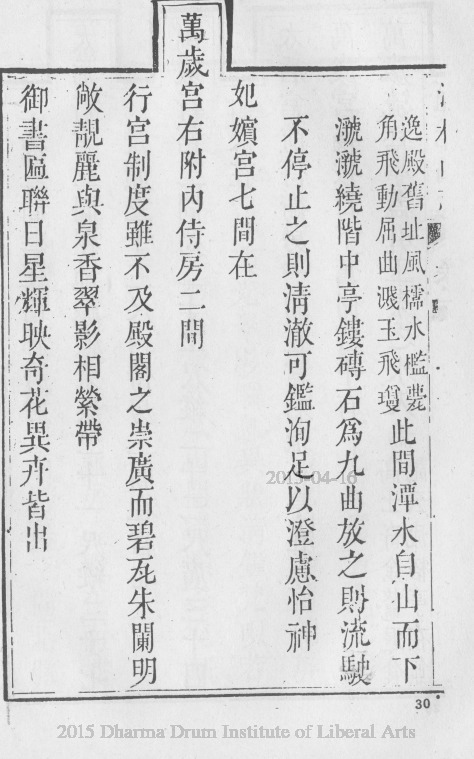 逸殿舊址風檽水檻甍
角飛動屈曲濺玉飛瓊
此間潭水自山而下
㶁㶁繞階中亭鏤磚石爲九曲放之則流駛
不停止之則清澈可鑑洵足以澄慮怡神
妃嬪宮七間在
萬歲宮右附內侍房二間
行宮制度雖不及殿閣之崇廣而碧瓦朱闌明
敞靚麗與泉香翠影相縈帶
御書匾聯日星輝映奇花異卉皆出
30
2015-04-16
2015 Dharma Drum Institute of Liberal Arts